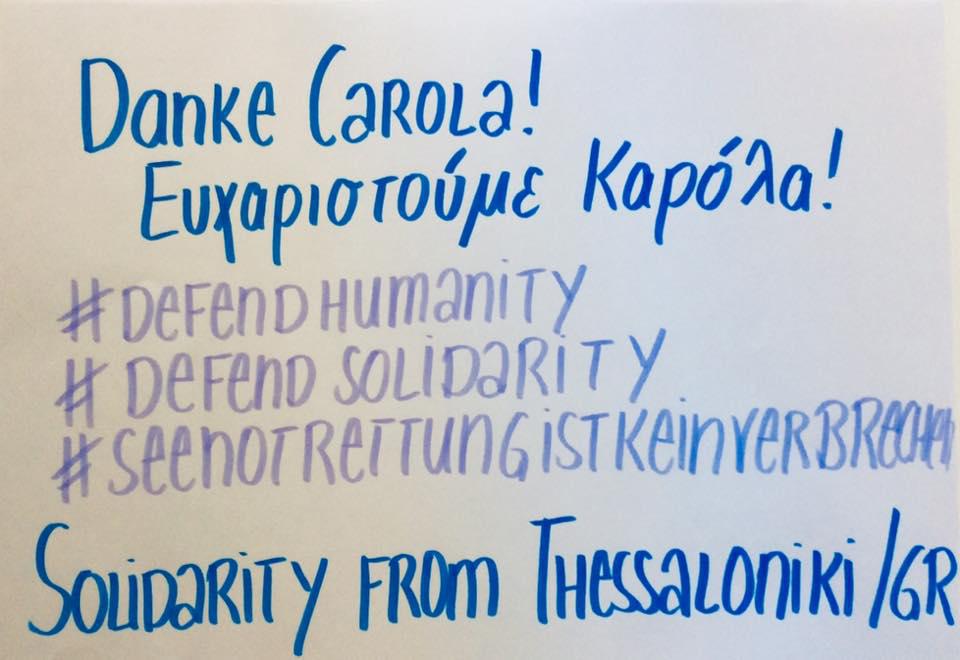 Danke Carola!
Ευχαριστούμε Καρόλα!
#DefendHumanity
#Defend Solidarity
#SeenotrettungistKeinVerbrechen
Solidarity from Thessaloniki/GR